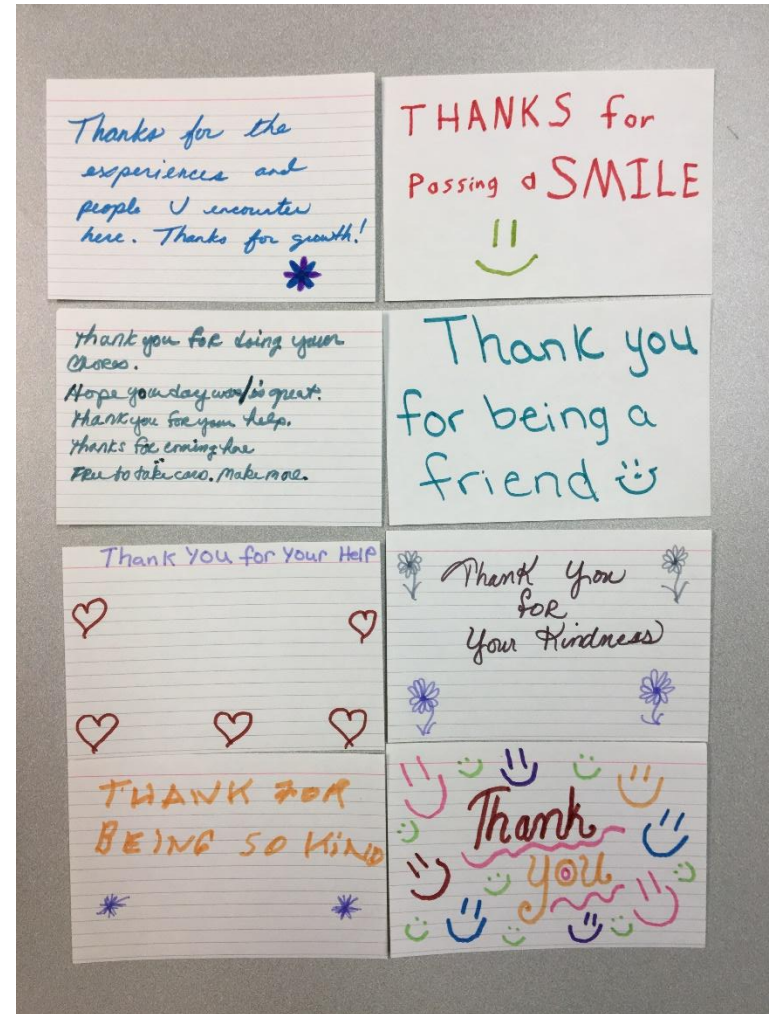 Thanks for the
experiences and
people I encounter
here. Thanks for growth!
THANKS for
Passing a SMILE
Thank you for doing your
chores.
Hope your day was/is great.
Thank you for your help.
Thanks for coming here
Free to take card. Make more.
Thank you
for being a
friend
Thank You for Your Help
Thank You
FOR
Your Kindness
THANK FOR
BEING SO KIND
Thank
you